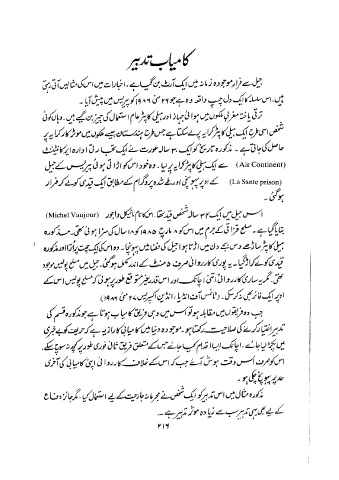 کامیاب تدبیر
جیل سے فرار موجودہ زمانہ میں ایک آرٹ بن گیا ہے۔ اخبارات میں اس کی مثالیں آتی رہتی
ہیں۔ اس سلسلہ کا ایک دل چسپ واقعہ وہ ہے جو ۲۶ مئی ۱۹۸۶ کو پیرس میں پیش آیا۔
ترقی یافتہ مغربی ملکوں میں ہوائی جہاز اور ہیلی کاپٹر عام استعمال کی چیز بن گئے ہیں۔ وہاں کوئی
شخص اسی طرح ایک ہیلی کاپٹر کرایہ پر لے سکتا ہے جس طرح ہندستان جیسے ملکوں میں موٹر کار کرایہ پر
حاصل کی جاتی ہے۔ مذکورہ تاریخ کو ایک ۳۰ سالہ عورت نے ایک مقامی ادارہ ایر کانٹیننٹ
(Air Continent) سے ایک ہیلی کاپٹر کرایہ پر لیا۔ وہ خود اس کو اڑاتی ہوئی پیرس کے جیل
(La Sante prison) کے اوپر پہونچی اور طے شدہ پروگرام کے مطابق ایک قیدی کو لے کر فرار
ہوگئی۔
اس جیل میں ایک ۳۴ سالہ شخص قید تھا۔ اس کا نام مائیکل واجور (Michel Vaujour)
بتایا گیا ہے۔ مسلح قزاقی کے جرم میں اس کو ۸ مارچ ۱۹۸۵ کو ۱۸ سال کی سزا ہوئی تھی۔ مذکورہ
ہیلی کاپٹر ساڑھے دس بجے دن میں اڑتا ہوا جیل کی فضا میں پہونچا۔ وہ اس کی ایک چھت پر اترا اور مذکورہ
قیدی کو لے کر اڑ گیا۔ یہ پوری کارروائی صرف ۵ منٹ کے اندر مکمل ہوگئی۔ جیل میں مسلح پولیس موجود
تھی۔ مگر یہ ساری کارروائی اتنی اچانک اور اس قدر غیر متوقع طور پر ہوئی کہ مسلح پولیس اس کے
اوپر ایک فائر بھی نہ کرسکی۔ (ٹائمس آف انڈیا، انڈین اکسپریس ۲۷ مئی ۱۹۸۶)
جب دو فریقوں میں مقابلہ ہو تو اس میں وہی فریق کامیاب ہوتا ہے جو مذکورہ قسم کی
تدبیر اختیار کرنے کی صلاحیت رکھتا ہو۔ موجودہ دنیا میں کامیابی کا راز یہ ہے کہ حریف کو بے خبری
میں پکڑ لیا جائے۔ اچانک ایسا اقدام کیا جائے جس کے متعلق فریق ثانی فوری طور پر کچھ نہ سوچ سکے۔
اس کو صرف اس وقت ہوش آئے جب کہ اس کے خلاف کارروائی اپنی کامیابی کی آخری
حد پر پہونچ چکی ہو۔
مذکورہ مثال میں اس تدبیر کو ایک شخص نے مجرمانہ جارحیت کے لیے استعمال کیا۔ مگر جائز دفاع
کے لیے بھی یہی تدبیر سب سے زیادہ موثر تدبیر ہے۔
۲۱۶